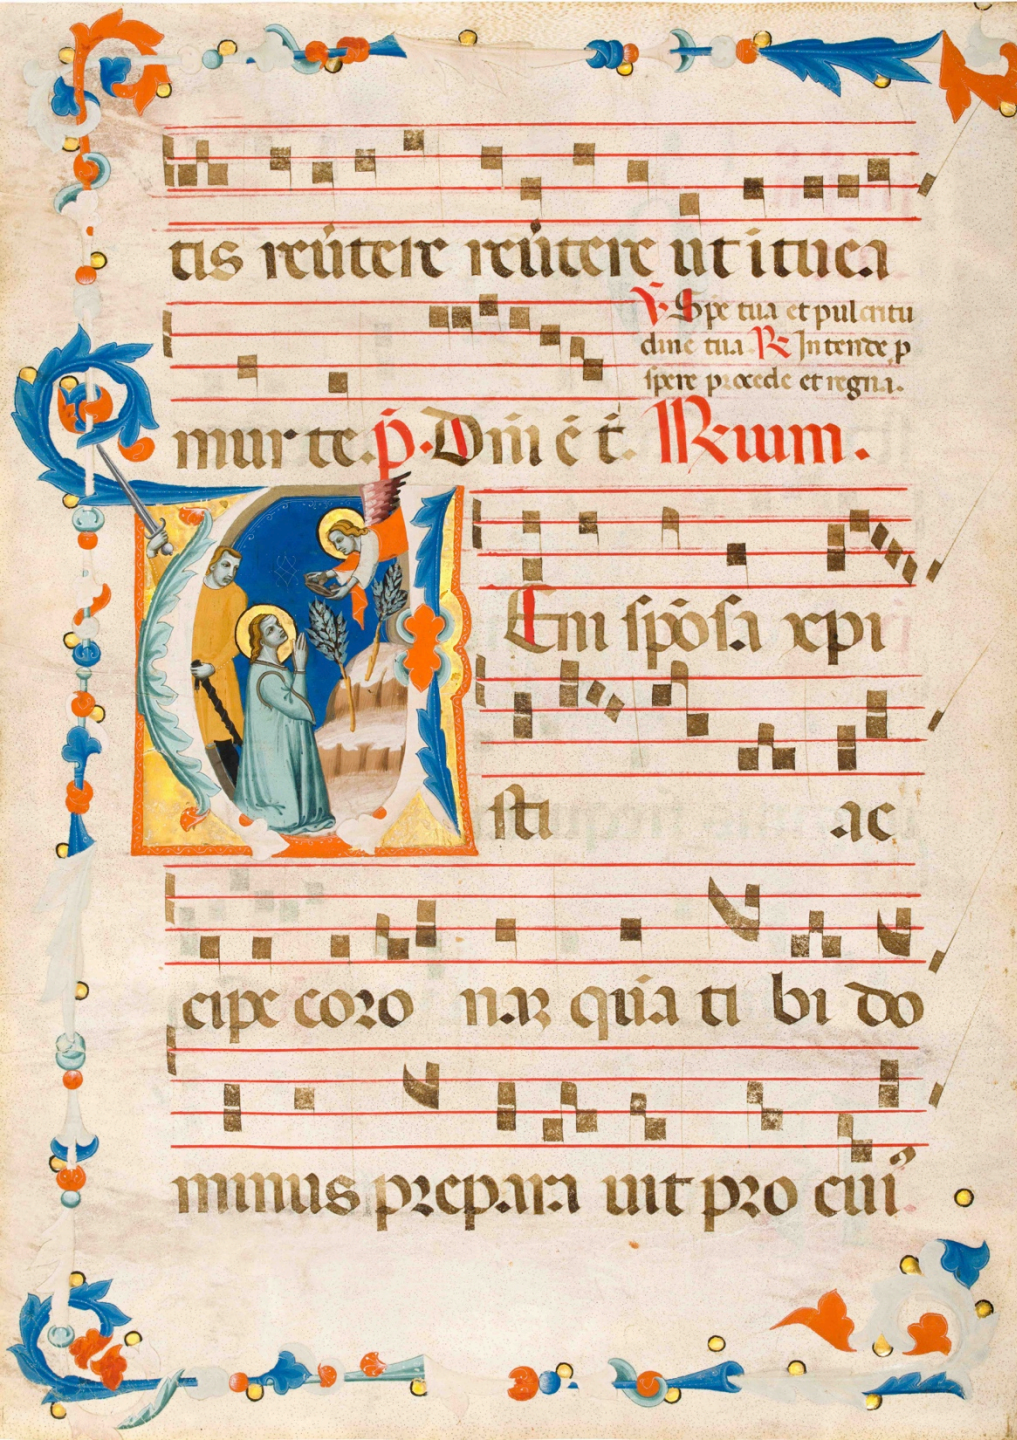 tis reũtere reũtere ut ituea
℣ Spe tua et pulcritu
dine tua ℟ Intende p̱
spere procede et regna.
mur te. p̄. Dñi ē t̄. ℟uum.
Eni sp̄õsa xpi
sti ac
cipe coro naꝫ quã ti bi do
minus prepara uit pro cuiꝰ